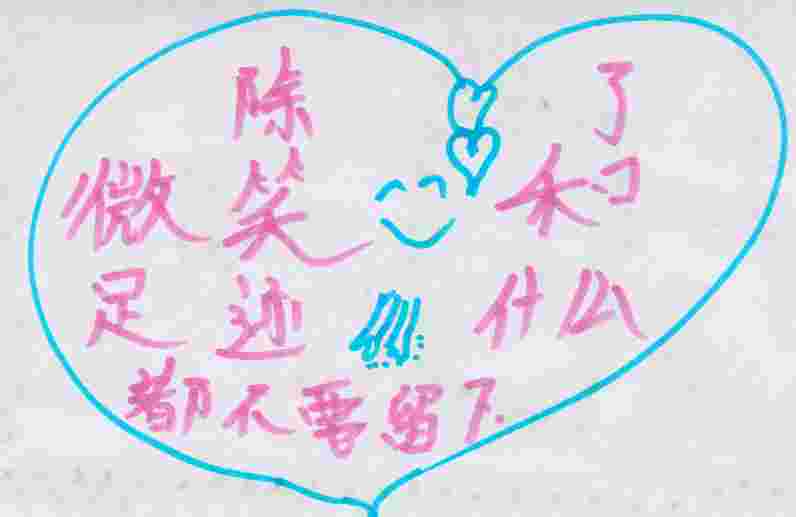 除 了
微笑 和
足迹 什么
都不要留下.